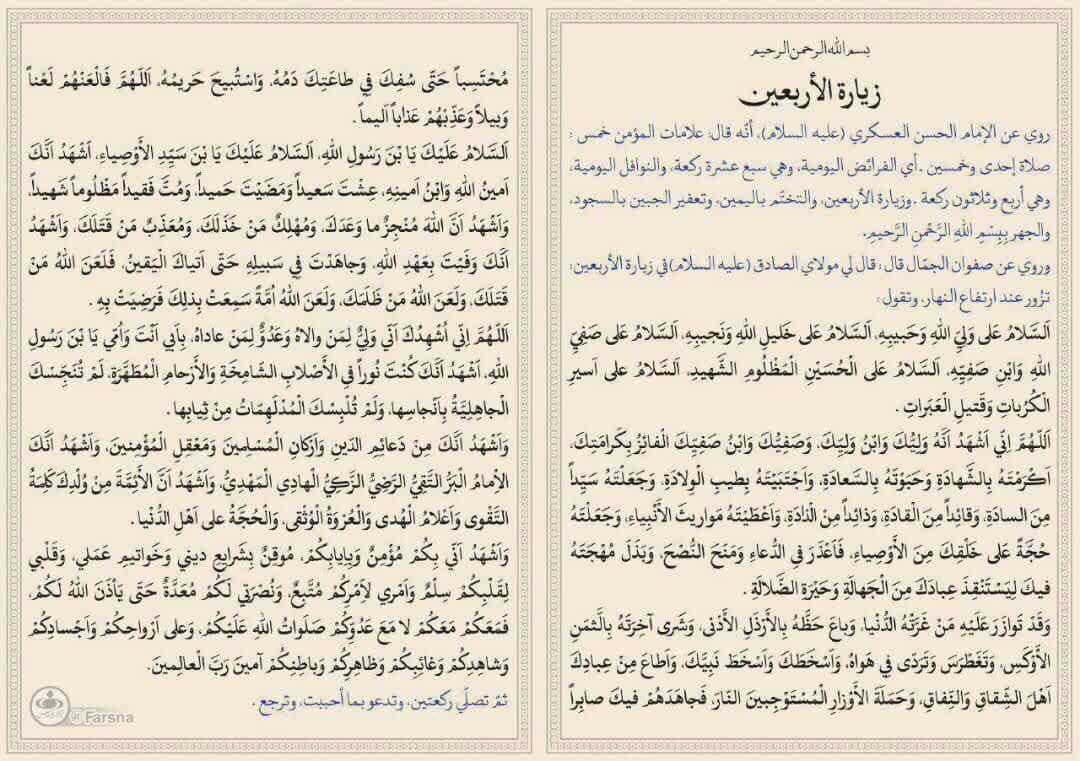 بسم الله الرحمن الرحيم
زيارة الأربعين
روي عن الإمام الحسن العسكري (عليه السلام)، أنّه قال: علامات المؤمن خمس :
صلاة إحدى وخمسين . أي الفرائض اليومية، وهي سبع عشرة ركعة، والنوافل اليومية،
وهي أربع وثلاثون ركعة . وزيارة الأربعين، والتختّم باليمين، وتعفير الجبين بالسجود،
والجهر بِبِسْمِ اللهِ الرَّحْمنِ الرَّحِيمِ.
وروي عن صفوان الجمّال قال : قال لي مولاي الصادق (عليه السلام) في زيارة الأربعين:
تزُور عند ارتفاع النهار، وتقول:
اَلسَّلامُ عَلى وَلِيِّ اللهِ وَحَبيبِهِ، اَلسَّلامُ عَلى خَليلِ اللهِ وَنَجيبِهِ، اَلسَّلامُ عَلى صَفِيِّ
اللهِ وَابْنِ صَفِيِّهِ، اَلسَّلامُ عَلى الْحُسَيْنِ الْمَظْلُومِ الشَّهيدِ، اَلسَّلامُ على اَسيرِ
الْكُرُباتِ وَقَتيلِ الْعَبَراتِ .
اَللّهُمَّ اِنّي اَشْهَدُ اَنَّهُ وَلِيُّكَ وَابْنُ وَلِيِّكَ، وَصَفِيُّكَ وَابْنُ صَفِيِّكَ الْفائِزُ بِكَرامَتِكَ،
اَكْرَمْتَهُ بِالشَّهادَةِ وَحَبَوْتَهُ بِالسَّعادَةِ، وَاَجْتَبَيْتَهُ بِطيبِ الْوِلادَةِ، وَجَعَلْتَهُ سَيِّداً
مِنَ السادَةِ، وَقائِداً مِنَ الْقادَةِ، وَذائِداً مِنْ الْذادَةِ، وَاَعْطَيْتَهُ مَواريثَ الأَنْبِياءِ، وَجَعَلْتَهُ
حُجَّةً عَلى خَلْقِكَ مِنَ الأَوْصِياءِ، فَاَعْذَرَ فىِ الدُّعاءِ وَمَنَحَ النُّصْحَ، وَبَذَلَ مُهْجَتَهُ
فيكَ لِيَسْتَنْقِذَ عِبادَكَ مِنَ الْجَهالَةِ وَحَيْرَةِ الضَّلالَةِ .
وَقَدْ تَوازَرَ عَلَيْهِ مَنْ غَرَّتْهُ الدُّنْيا، وَباعَ حَظَّهُ بِالأَرْذَلِ الأَدْنى، وَشَرى آخِرَتَهُ بِالَّثمَنِ
الأَوْكَسِ، وَتَغَطْرَسَ وَتَرَدّى فِي هَواهُ، وَاَسْخَطَكَ وَاَسْخَطَ نَبِيَّكَ، وَاَطاعَ مِنْ عِبادِكَ
اَهْلَ الشِّقاقِ وَالنِّفاقِ، وَحَمَلَةَ الأَوْزارِ الْمُسْتَوْجِبينَ النّارَ، فَجاهَدَهُمْ فيكَ صابِراً
مُحْتَسِباً حَتّى سُفِكَ فِي طاعَتِكَ دَمُهُ، وَاسْتُبيحَ حَريمُهُ، اَللّهُمَّ فَالْعَنْهُمْ لَعْناً
وَبيلاً وَعَذِّبْهُمْ عَذاباً اَليماً .
اَلسَّلامُ عَلَيْكَ يَا بْنَ رَسُولِ اللهِ، اَلسَّلامُ عَلَيْكَ يَا بْنَ سَيِّدِ الأَوْصِياءِ، اَشْهَدُ اَنَّكَ
اَمينُ اللهِ وَابْنُ اَمينِهِ، عِشْتَ سَعيداً وَمَضَيْتَ حَميداً، وَمُتَّ فَقيداً مَظْلُوماً شَهيداً،
وَاَشْهَدُ اَنَّ اللهَ مُنْجِزٌ ما وَعَدَكَ، وَمُهْلِكٌ مَنْ خَذَلَكَ، وَمُعَذِّبٌ مَنْ قَتَلَكَ، وَاَشْهَدُ
اَنَّكَ وَفَيْتَ بِعَهْدِ اللهِ، وَجاهَدْتَ فِي سَبيلِهِ حَتّى اَتياكَ الْيَقينُ، فَلَعَنَ اللهُ مَنْ
قَتَلَكَ، وَلَعَنَ اللهُ مَنْ ظَلَمَكَ، وَلَعَنَ اللهُ اُمَّةً سَمِعَتْ بِذلِكَ فَرَضِيَتْ بِهِ .
اَللّهُمَّ اِنّي اُشْهِدُكَ اَنّي وَلِيٌّ لِمَنْ والاهُ وَعَدُوٌّ لِمَنْ عاداهُ، بِاَبي اَنْتَ وَاُمّي يَا بْنَ رَسُولِ
اللهِ، اَشْهَدُ اَنَّكَ كُنْتَ نُوراً فىِ الأَصْلابِ الشّامِخَةِ وَالأَرْحامِ الْمُطَهَّرَةِ، لَمْ تُنَجِّسْكَ
الْجاهِلِيَّةُ بِاَنْجاسِها، وَلَمْ تُلْبِسْكَ الْمُدْلَهِمّاتُ مِنْ ثِيابِها .
وَاَشْهَدُ اَنَّكَ مِنْ دَعائِمِ الدّينِ وَاَرْكانِ الْمُسْلِمينَ وَمَعْقِلِ الْمُؤْمِنينَ، وَاَشْهَدُ اَنَّكَ
الاِمامُ الْبَرُّ التَّقِيُّ الرَّضِيُّ الزَّكِيُّ الْهادِي الْمَهْدِيُّ، وَاَشْهَدُ اَنَّ الأَئِمَّةَ مِنْ وُلْدِكَ كَلِمَةُ
التَّقْوى وَاَعْلامُ الْهُدى وَالْعُرْوَةُ الْوُثْقى، وَالْحُجَّةُ على اَهْلِ الدُّنْيا .
وَاَشْهَدُ اَنّي بِكُمْ مُؤْمِنٌ وَبِاِيابِكُمْ، مُوقِنٌ بِشَرايِعِ ديني وَخَواتيمِ عَمَلي، وَقَلْبي
لِقَلْبِكُمْ سِلْمٌ وَاَمْري لاَِمْرِكُمْ مُتَّبِعٌ، وَنُصْرَتي لَكُمْ مُعَدَّةٌ حَتّى يَأذَنَ اللهُ لَكُمْ،
فَمَعَكُمْ مَعَكُمْ لا مَعَ عَدُوِّكُمْ صَلَواتُ اللهِ عَلَيْكُمْ، وَعلى اَرْواحِكُمْ وَاَجْسادِكُمْ
وَشاهِدِكُمْ وَغائِبِكُمْ وَظاهِرِكُمْ وَباطِنِكُمْ آمينَ رَبَّ الْعالِمينَ.
ثمّ تصلّي ركعتين، وتدعو بما أحببت، وترجع .
@Farsna